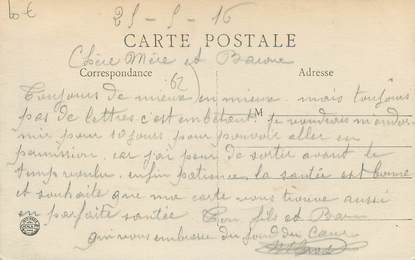 25-5-16
CARTE POSTALE
Chère Mère et
Correspondance
62
Adresse
Toujours de mieux en mieux mais toujours
pas de lettres c'est embêtant je voudrais m'endor
M
mir pour 10 jours pour pouvoir aller en
permission. car j'ai peur de sortir avant le
temp voulu. enfin patience la santée est bonne
et souhaite que ma carte vous trouve aussi
en parfaite santée Ton fils et
qui vous embrasse du fond du Cœur